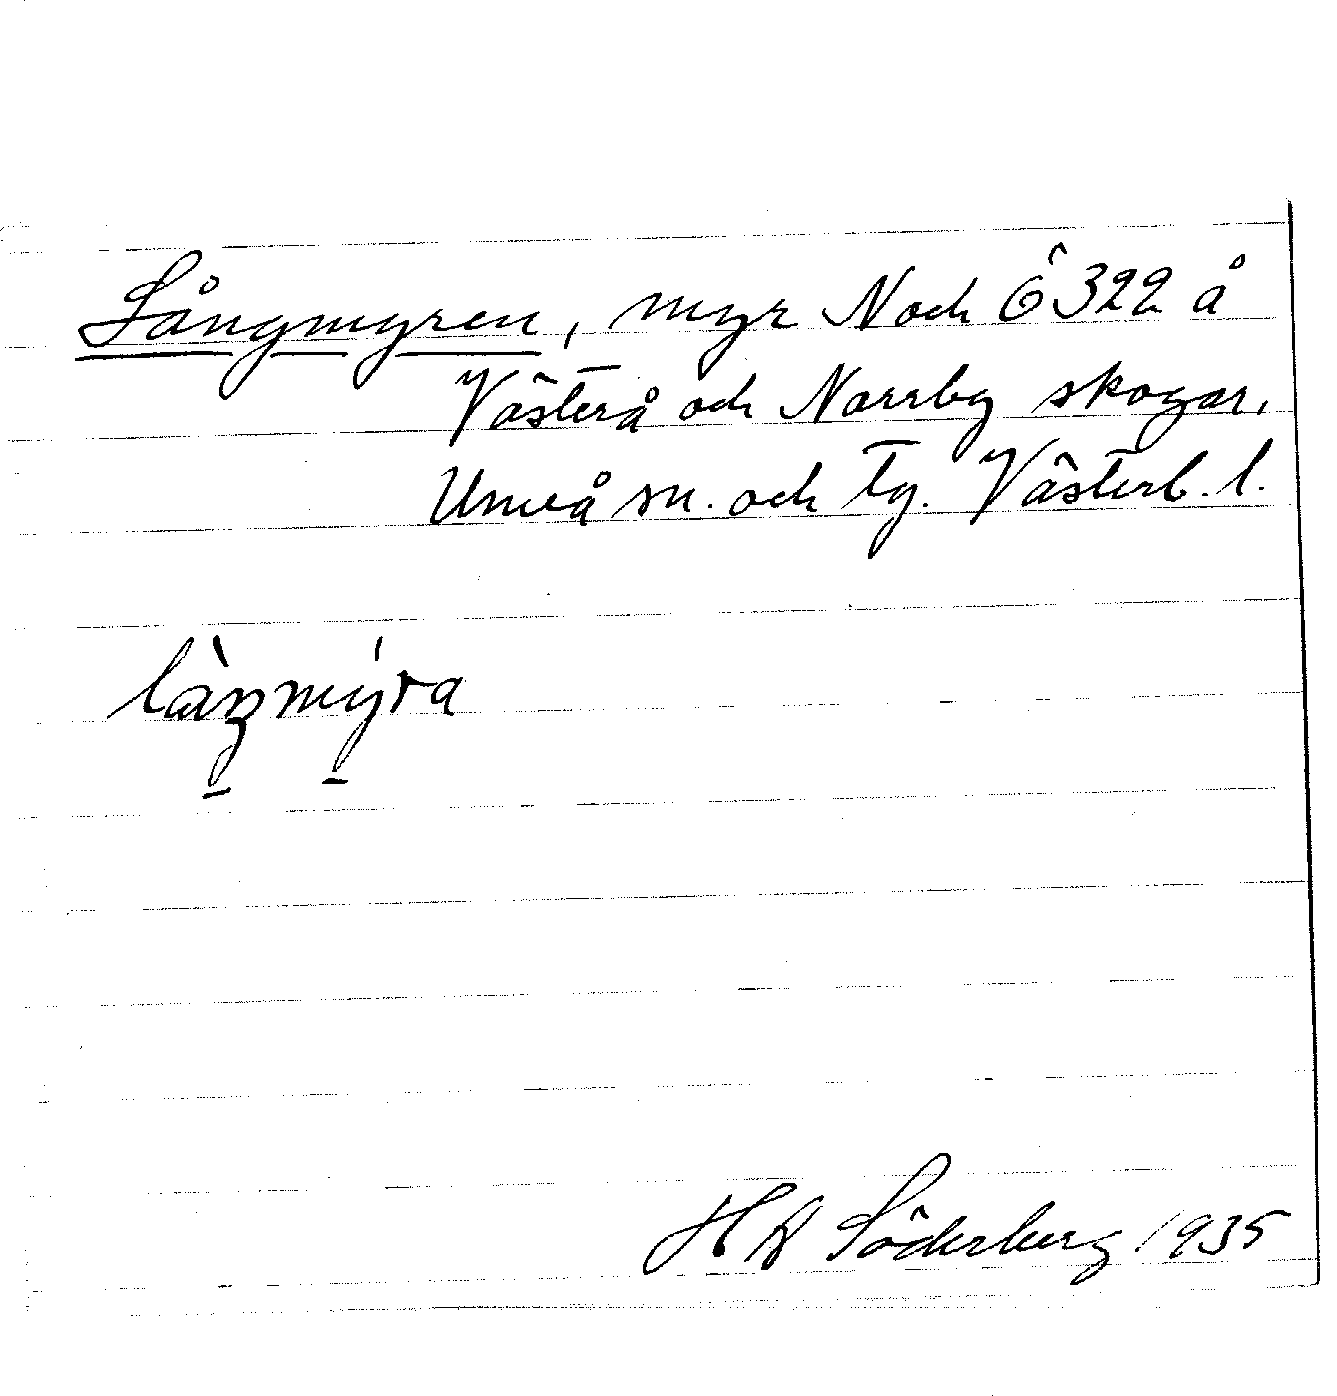 Långmyren, myr N och Ö 322 å
Västerå och Norrby skogar,
Umeå sn. och tg. Västerb. l.
H A Söderberg 1935